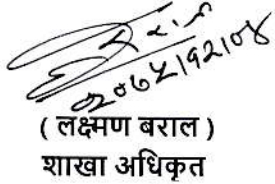 २०७५।१२।०४
( लक्ष्मण बराल )
शाखा अधिकृत